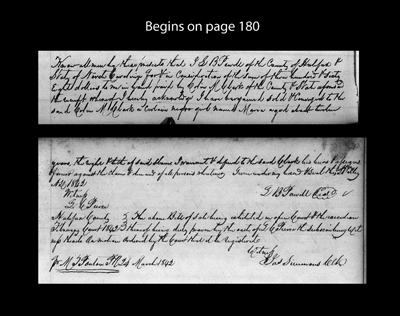 Begins on page 180
Know all men by these presents that I G B Powell of the County of Halifax &
State of North Carolina for & in Consideration of the sum of three hundred & sixty
Eight dollars to me in hand paid by Colin M Clark of the County & State aforesaid
the receipt whereof I hereby acknowledge I have bargained sold & conveyed to the
said Colin M Clark a certain negro girl named Maria aged about twelve
years, the right & title of said Slave I warrant & defend to the said Clark his heirs & assigns
forever against the claim & demand of all persons whatever. Given under my hand & Seal this
1842
Witness
G B Powell Seal
Halifax County } The above Bill of Sale being exhibited in open Court & the record on
February Court 1842 } thereof being duly proven by the oath of the subscribing Wit
ness thereto was ordered by the Court that it be registered
Witness
24 March 1842
Jas Simmons Clk